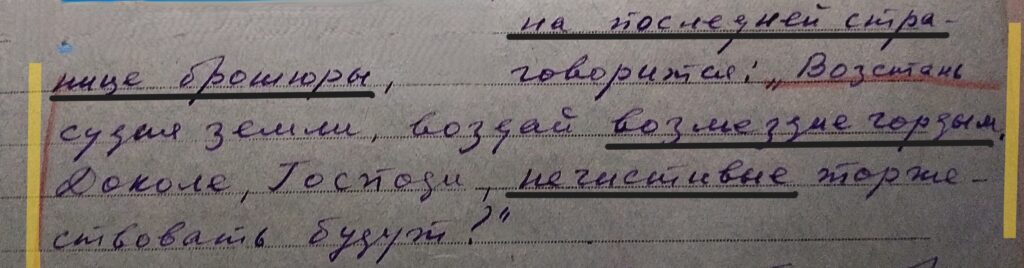 на последней стра-
нице брошюры, говорится: „Возстань
судия земли, воздай возмездие гордым.
Доколе, Господи, нечистивые торже-
ствовать будут?"